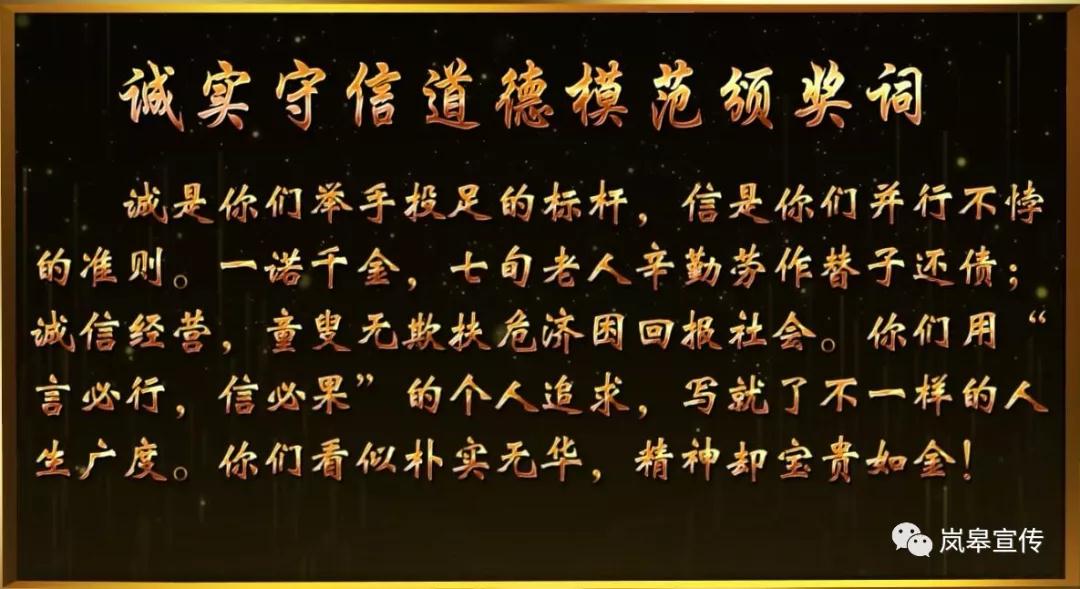 诚实守信道德模范颁奖词
诚是你们举手投足的标杆，信是你们并行不悖
的准则。一诺千金，七旬老人辛勤劳作替子还债；
诚信经营，童叟无欺扶危济困回报社会。你们用“
言必行，信必果”的个人追求，写就了不一样的人
生广度。你们看似朴实无华，精神却宝贵如金！
岚皋宣传